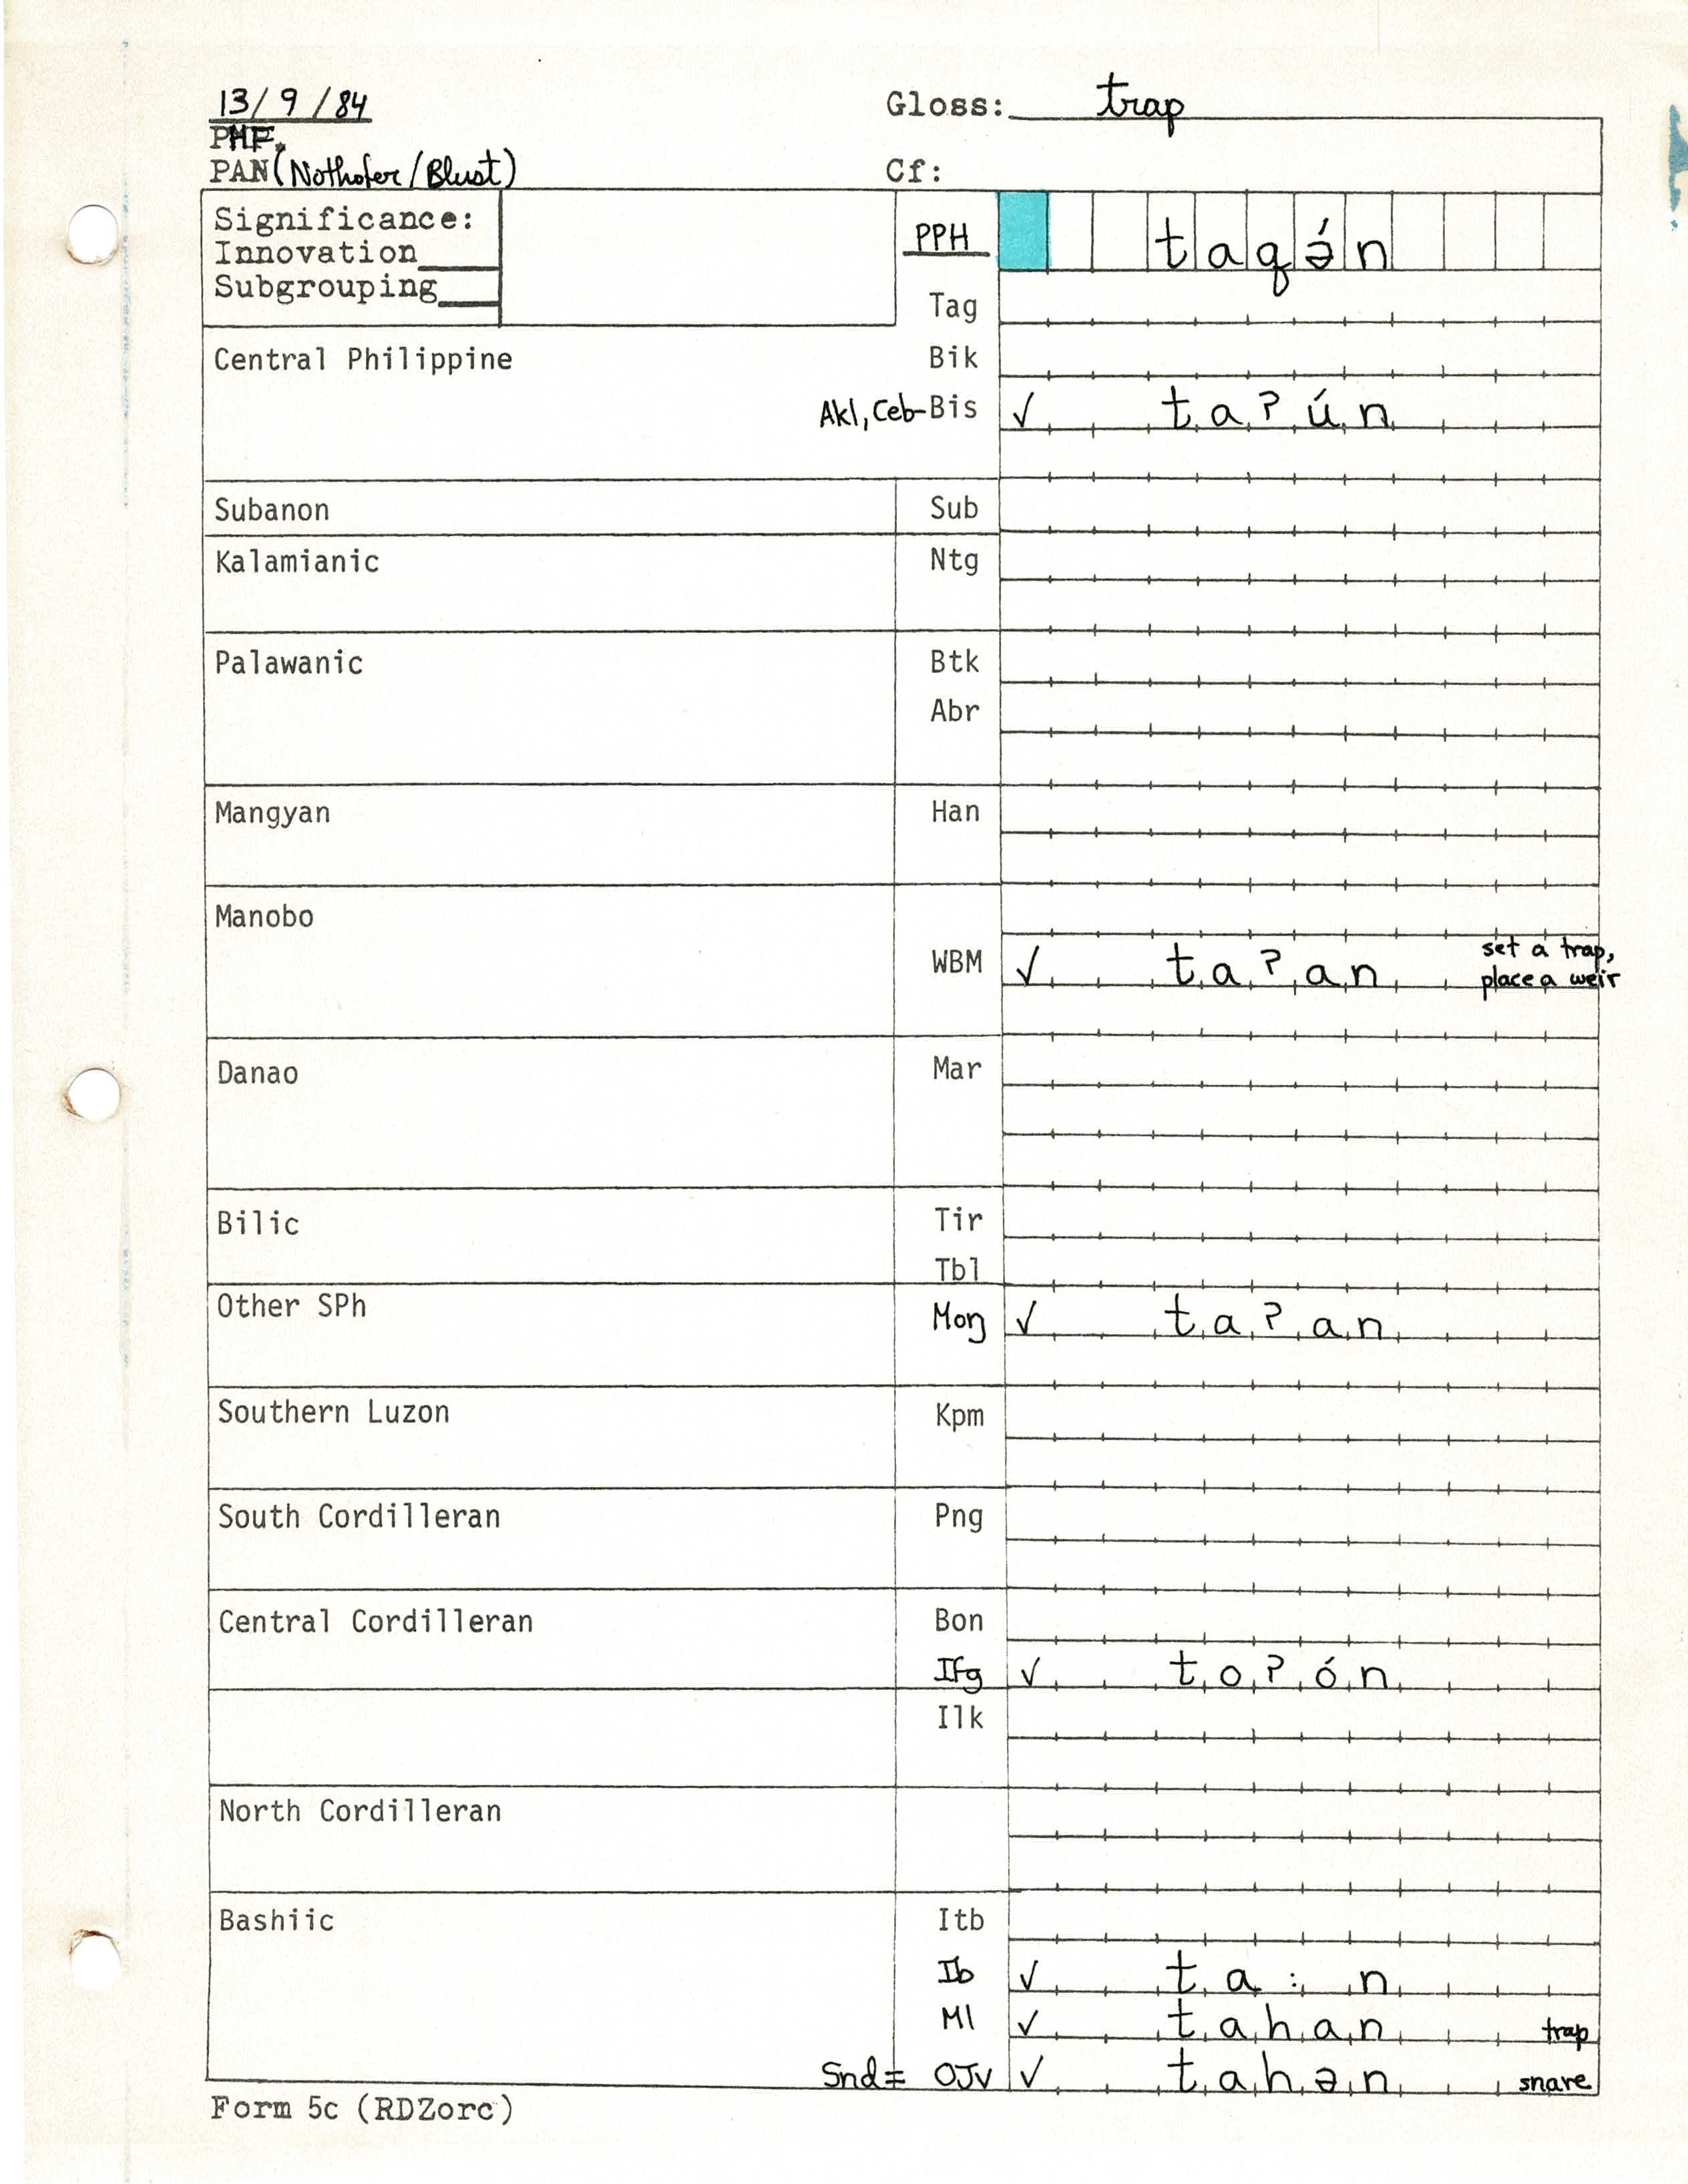 13/9/84 Gloss: trap
PMP.
PAN (Nothofer/Blust) Cf:
Significance:
Innovation
Subgrouping
PPH taqə́n
Tag
Central Philippine Bik
Akl, Ceb-Bis ✓ taʔún
Subanon Sub
Kalamianic Ntg
Palawanic Btk
Abr
Mangyan Han
Manobo
WBM ✓ taʔan set a trap,
place a weir
Danao Mar
Bilic Tir
Tbl
Other SPh Moŋ ✓ taʔan
Southern Luzon Kpm
South Cordilleran Png
Central Cordilleran Bon
Ifg ✓ toʔón
Ilk
North Cordilleran
Bashiic Itb
Ib ✓ ta:n
Ml ✓ tahan trap
Snd= OJv ✓ tahən snare
Form 5c (RDZorc)